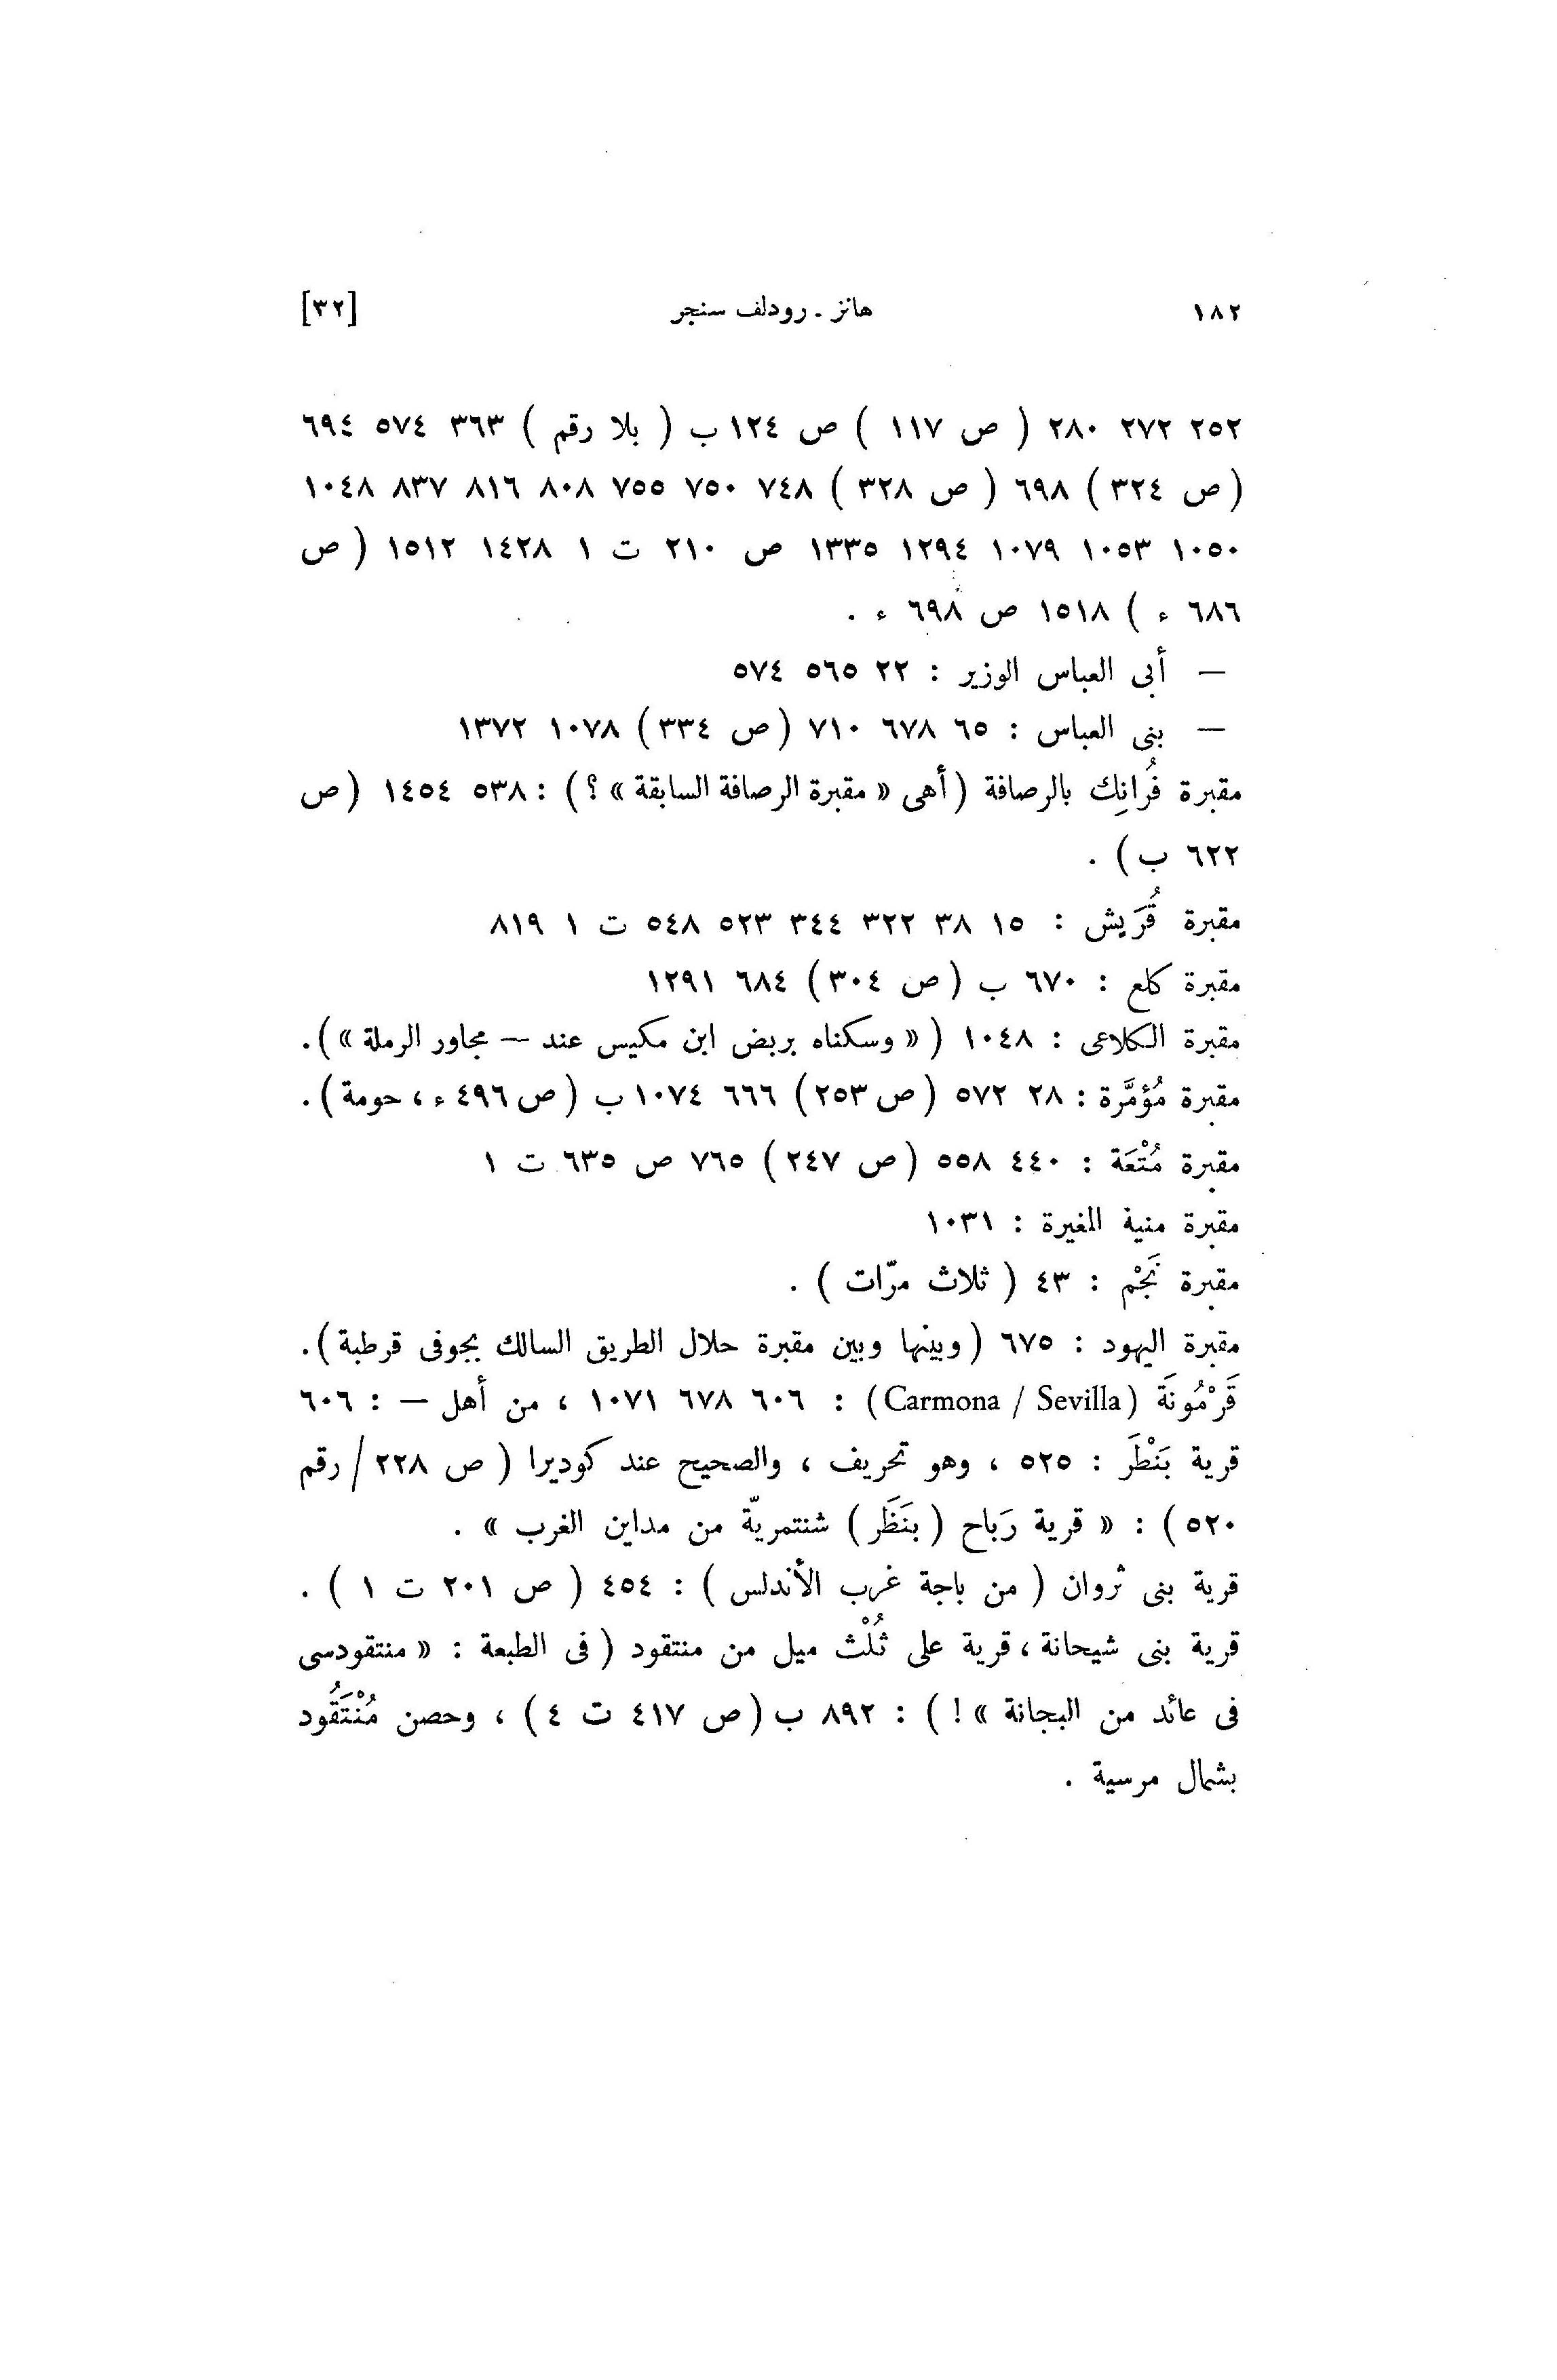 ١٨٢ هانز ـ رودلف سنجر [٣٢]
٢٥٢ ٢٧٢ ٢٨٠ ( ص ١١٧ ) ص ١٢٤ ب ( بلا رقم ) ٣٦٣ ٥٧٤ ٦٩٤
( ص ٣٢٤ ) ٦٩٨ ( ص ٣٢٨ ) ٧٤٨ ٧٥٠ ٧٥٥ ٨٠٨ ٨١٦ ٨٣٧ ١٠٤٨
١٠٥٠ ١٠٥٣ ١٠٧٩ ١٢٩٤ ١٣٣٥ ص ٢١٠ ت ١ ١٤٢٨ ١٥١٢ ( ص
٦٨٦ ء ) ١٥١٨ ص ٦٩٨ ء .
— أبى العباس الوزير : ٢٢ ٥٦٥ ٥٧٤
— بنى العباس : ٦٥ ٦٧٨ ٧١٠ (ص ٣٣٤) ١٠٧٨ ١٣٧٢
مقبرة فُرانِك بالرصافة (أهى « مقبرة الرصافة السابقة » ؟) : ٥٣٨ ١٤٥٤ (ص
٦٢٢ ب) .
مقبرة قُرَيش : ١٥ ٣٨ ٣٢٢ ٣٤٤ ٥٢٣ ٥٤٨ ت ١ ٨١٩
مقبرة كلع : ٦٧٠ ب (ص ٣٠٤) ٦٨٤ ١٢٩١
مقبرة الكلاعى : ١٠٤٨ ( « وسكناه بربض ابن مكيس عند — مجاور الرملة » ).
مقبرة مُؤمَّرة : ٢٨ ٥٧٢ (ص ٢٥٣) ٦٦٦ ١٠٧٤ ب (ص ٤٩٦ ء ، حومة).
مقبرة مُتْعَة : ٤٤٠ ٥٥٨ (ص ٢٤٧) ٧٦٥ ص ٦٣٥ ت ١
مقبرة منية المغيرة : ١٠٣١
مقبرة نَجْم : ٤٣ ( ثلاث مرّات ) .
مقبرة اليهود : ٦٧٥ (وبينها وبين مقبرة حلال الطريق السالك بجوفى قرطبة).
قَرْمُونَة (Carmona / Sevilla) : ٦٠٦ ٦٧٨ ١٠٧١ ، من أهل — : ٦٠٦
قرية بَنْطَر : ٥٢٥ ، وهو تحريف ، والصحيح عند كوديرا ( ص ٢٢٨ / رقم
٥٢٠ ) : « قرية رَباح ( بنَظَر ) شنتمريّة من مداين الغرب » .
قرية بنى ثروان ( من باجة غرب الأندلس ) : ٤٥٤ ( ص ٢٠١ ت ١ ) .
قرية بنى شيحانة ، قرية على ثُلْث ميل من منتقود ( فى الطبعة : « منتقودسى
فى عائد من البجانة » ! ) : ٨٩٢ ب (ص ٤١٧ ت ٤) ، وحصن مُنْتَقُود
بشمال مرسية .